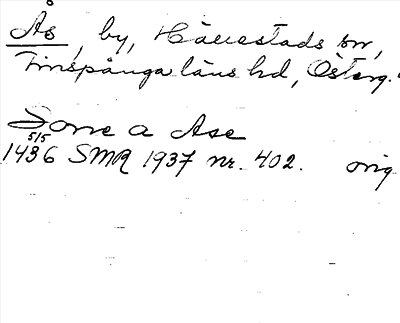 Ås, by, Hällestads sn,
Finspånga läns hd, Österg.
Som̅e a Ase
5/5
1436 SMR 1937 nr. 402. orig